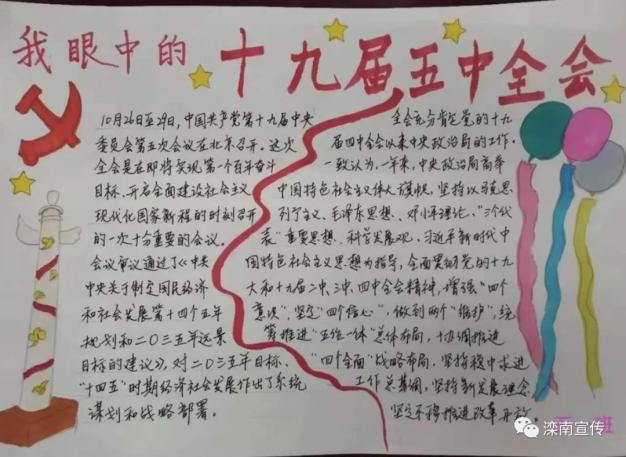 我眼中的十九届五中全会
10月26日至29日,中国共产党第十九届中央
委员会第五次会议在北京召开。这次
全会是在即将实现第一个百年奋斗
目标、开启全面建设社会主义
现代化国家新程的时刻召开
的一次十分重要的会议。
会议审议通过了《中央
中央关于制定国民经济
和社会发展第十四个五年
规划和二〇三五年远景
目标的建议》,对二〇三五年目标、
"十四五"时期经济社会发展作出了系统
谋划和战略部署。
全会充分肯定党的十九
届四中全会以来中央政治局的工作。
一致认为,一年来,中央政治局高举
中国特色社会主义伟大旗帜,坚持以马克思
列宁主义、毛泽东思想、邓小平理论、"三个代
表"重要思想、科学发展观、习近平新时代中
国特色社会主义思想为指导,全面贯彻党的十
九大和十九届二中、三中、四中全会精神,增强"四个
意识"、坚定"四个信心",做到两个"维护",统
筹推进"五位一体"总体布局,协调推进
"四个全面"战略布局,坚持稳中求进
工作总基调,坚持新发展理念
坚定不移推进改革开放。
班
滦南宣传